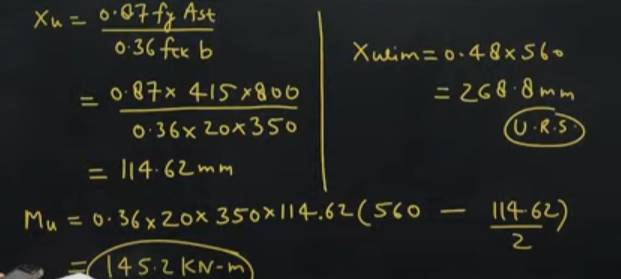 Xu = 0.87 fy Ast / 0.36 fck b
= 0.87 × 415 × 800 / 0.36 × 20 × 350
= 114.62 mm
Xulim = 0.48 × 560
= 268.8 mm
U.R.S.
Mu = 0.36 × 20 × 350 × 114.62 (560 − 114.62 / 2)
= 145.2 KN-m